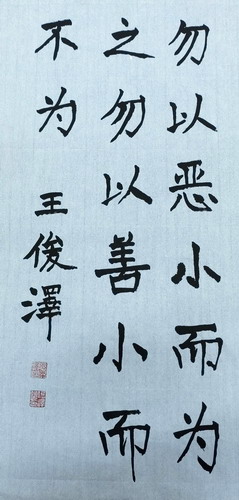 勿以恶小而为
之勿以善小而
不为
王俊澤